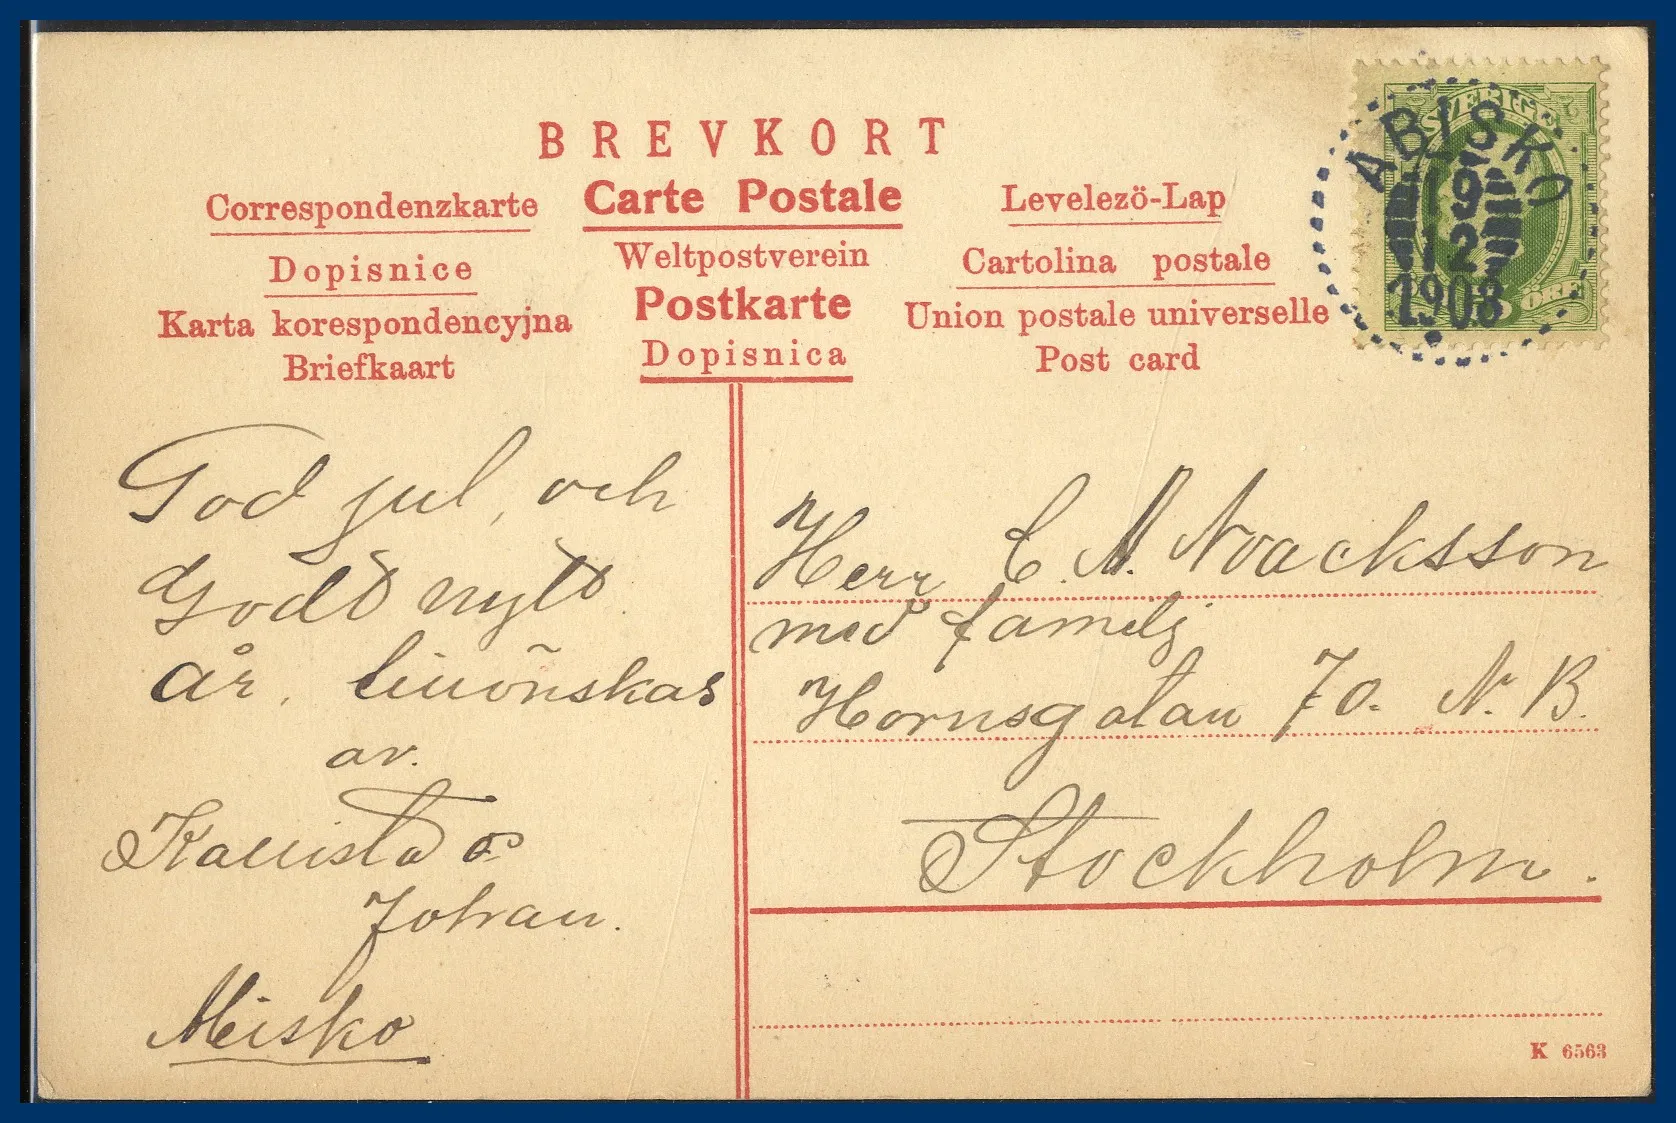 BREVKORT
Correspondenzkarte
Carte Postale
Levelezö-Lap
Dopisnice
Weltpostverein
Cartolina postale
Karta korespondencyjna
Postkarte
Union postale universelle
Briefkaart
Dopisnica
Post card
SVERIGE
ÖRE
ABISKO
19
12
1908
God jul, och
Godt nytt
år,
av.
o
Johan.
Herr C. A. Noacksson
med familj
Hornsgatan 70. N. B.
Stockholm.
K 6563